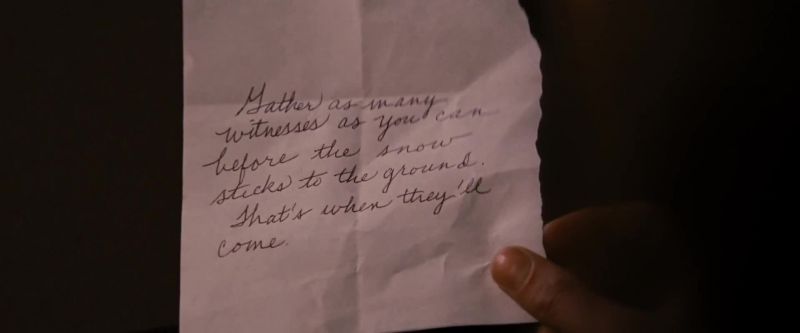 Gather as many
witnesses as you can
before the snow
sticks to the ground.
That's when they'll
come.